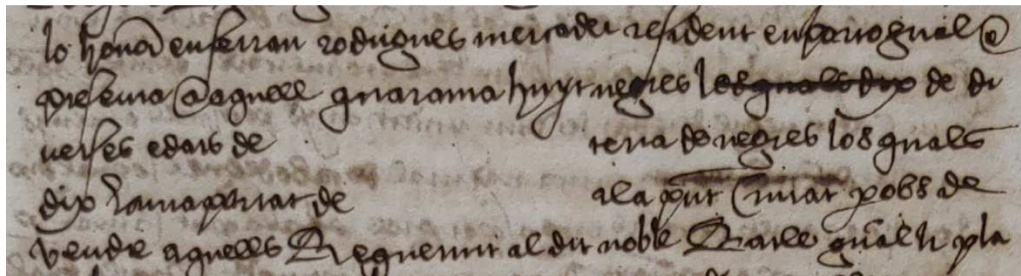 lo honor en ferran rodrigues mercader resident en portogual e
presenta a aquell quaranta huyt negres los quals dix de di
verses edats de terra de negres los quals
dix ha aportat de a la pnt Ciutat p obs de
vendre aquells E Requerint al dit noble Batle gnal li pla